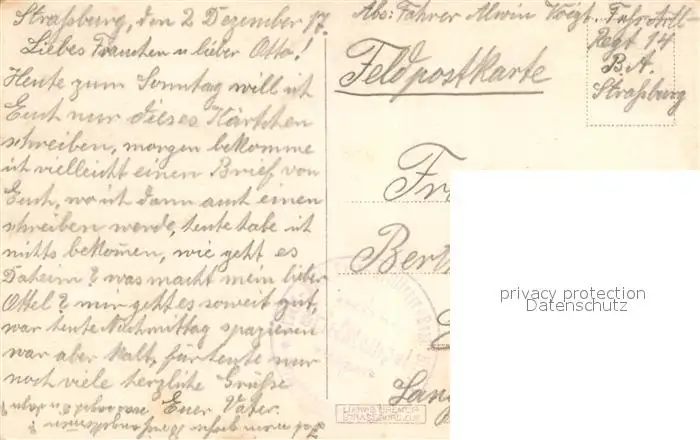 Straßburg, den 2 Dezember 17.
Liebes Frauchen u lieber Otto!
Heute zum Sonntag will ich
Euch nur dieses Kärtchen
schreiben, morgen bekomme
ich vielleicht einen Brief von
Euch, wo ich dann auch einen
schreiben werde, heute habe ich
nichts bekommen, wie geht es
Daheim? was macht mein lieber
Ottel? mir geht es soweit gut,
war heute Nachmittag spazieren
war aber kalt, für heute nur
noch viele herzliche Grüße
Euer Vater.
Abs: Fahrer Alwin Voigt. Fuß Artl-
Regt 14
B.A.
Straßburg
Feldpostkarte
Fr
Bert
privacy protection
Datenschutz